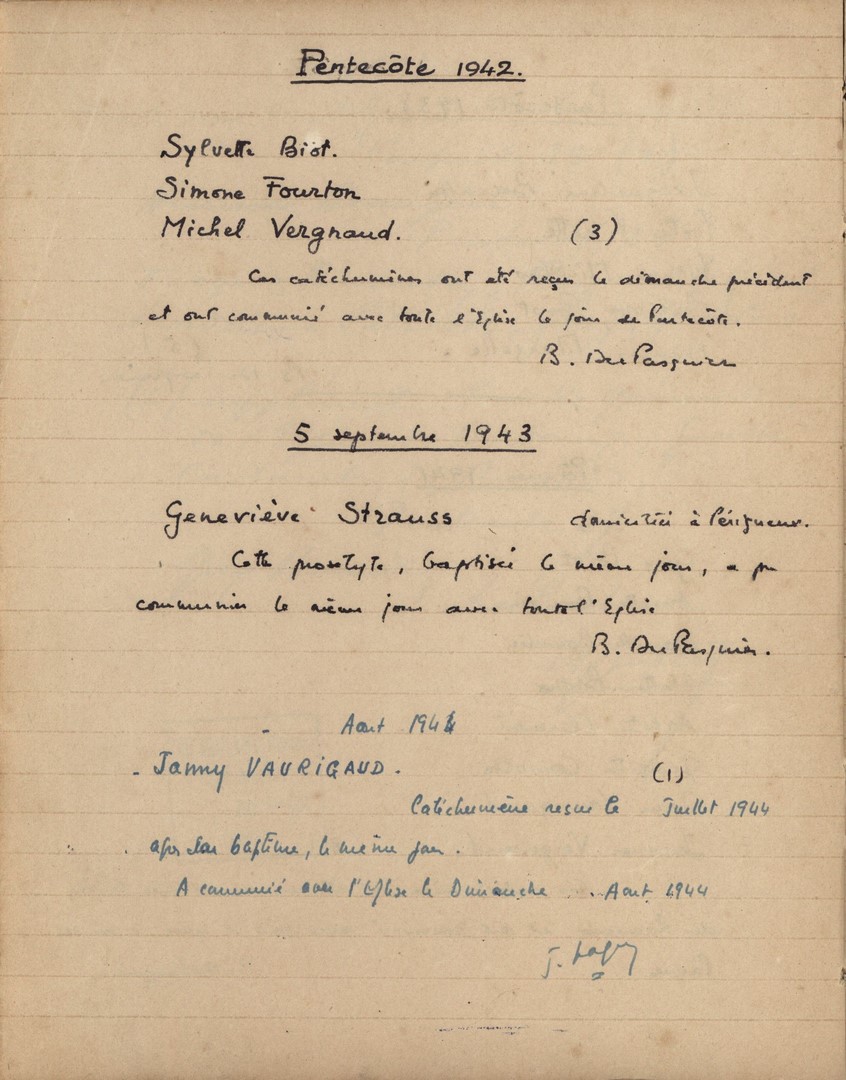 Pentecôte 1942.
Sylvette Biot.
Simone Fourton
Michel Vergnaud. (3)
Ces catéchumènes ont été reçus le dimanche précédent
et ont communié avec toute l'Eglise le jour de Pentecôte.
B. Du Pasquier
5 septembre 1943
Geneviève Strauss domiciliée à Périgueux.
Cette prosélyte, baptisée le même jour, a pu
communier le même jour avec toute l'Eglise
B. Du Pasquier.
- Aout 1944
- Janny VAURIGAUD. (1)
Catéchumène reçue le Juillet 1944
après son baptême, le même jour.
A communié avec l'Eglise le Dimanche .. Aout 1944
J.